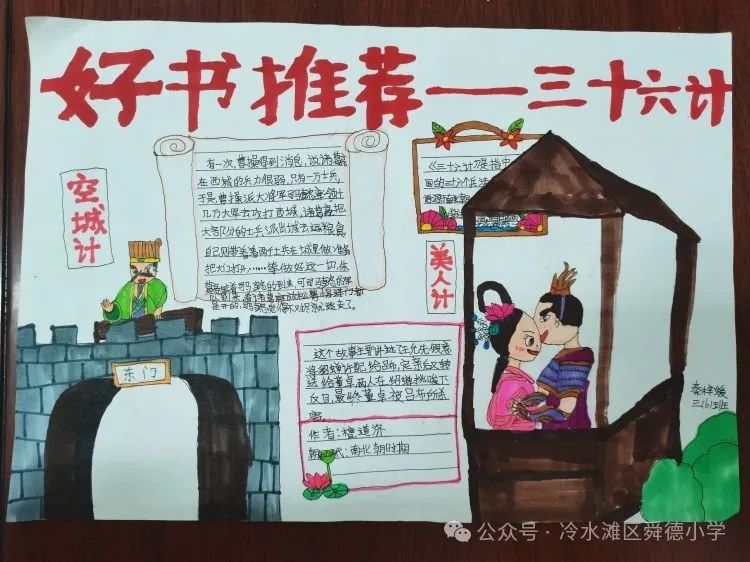 好书推荐——三十六计
空城计
有一次,曹操得到消息,说诸葛
在西城的兵力很弱,只有一万士兵,
于是,曹操派大将军司马懿率领
几万大军去攻打西城,诸葛亮把
大部分的士兵派出城去运粮食
自己则带着
把大门打开,……等做好这一切,朱
《三十六计》是指中
国的三十六个兵法
美人计
这个故事主要讲述了王允先假意
将貂蝉许配给吕布,定亲后又转
送给董卓,两人在貂蝉挑唆下
反目,最终董卓被吕布所杀
作者:檀道济
朝代:南北朝时期
东门
三(6)班
公众号·冷水滩区舜德小学